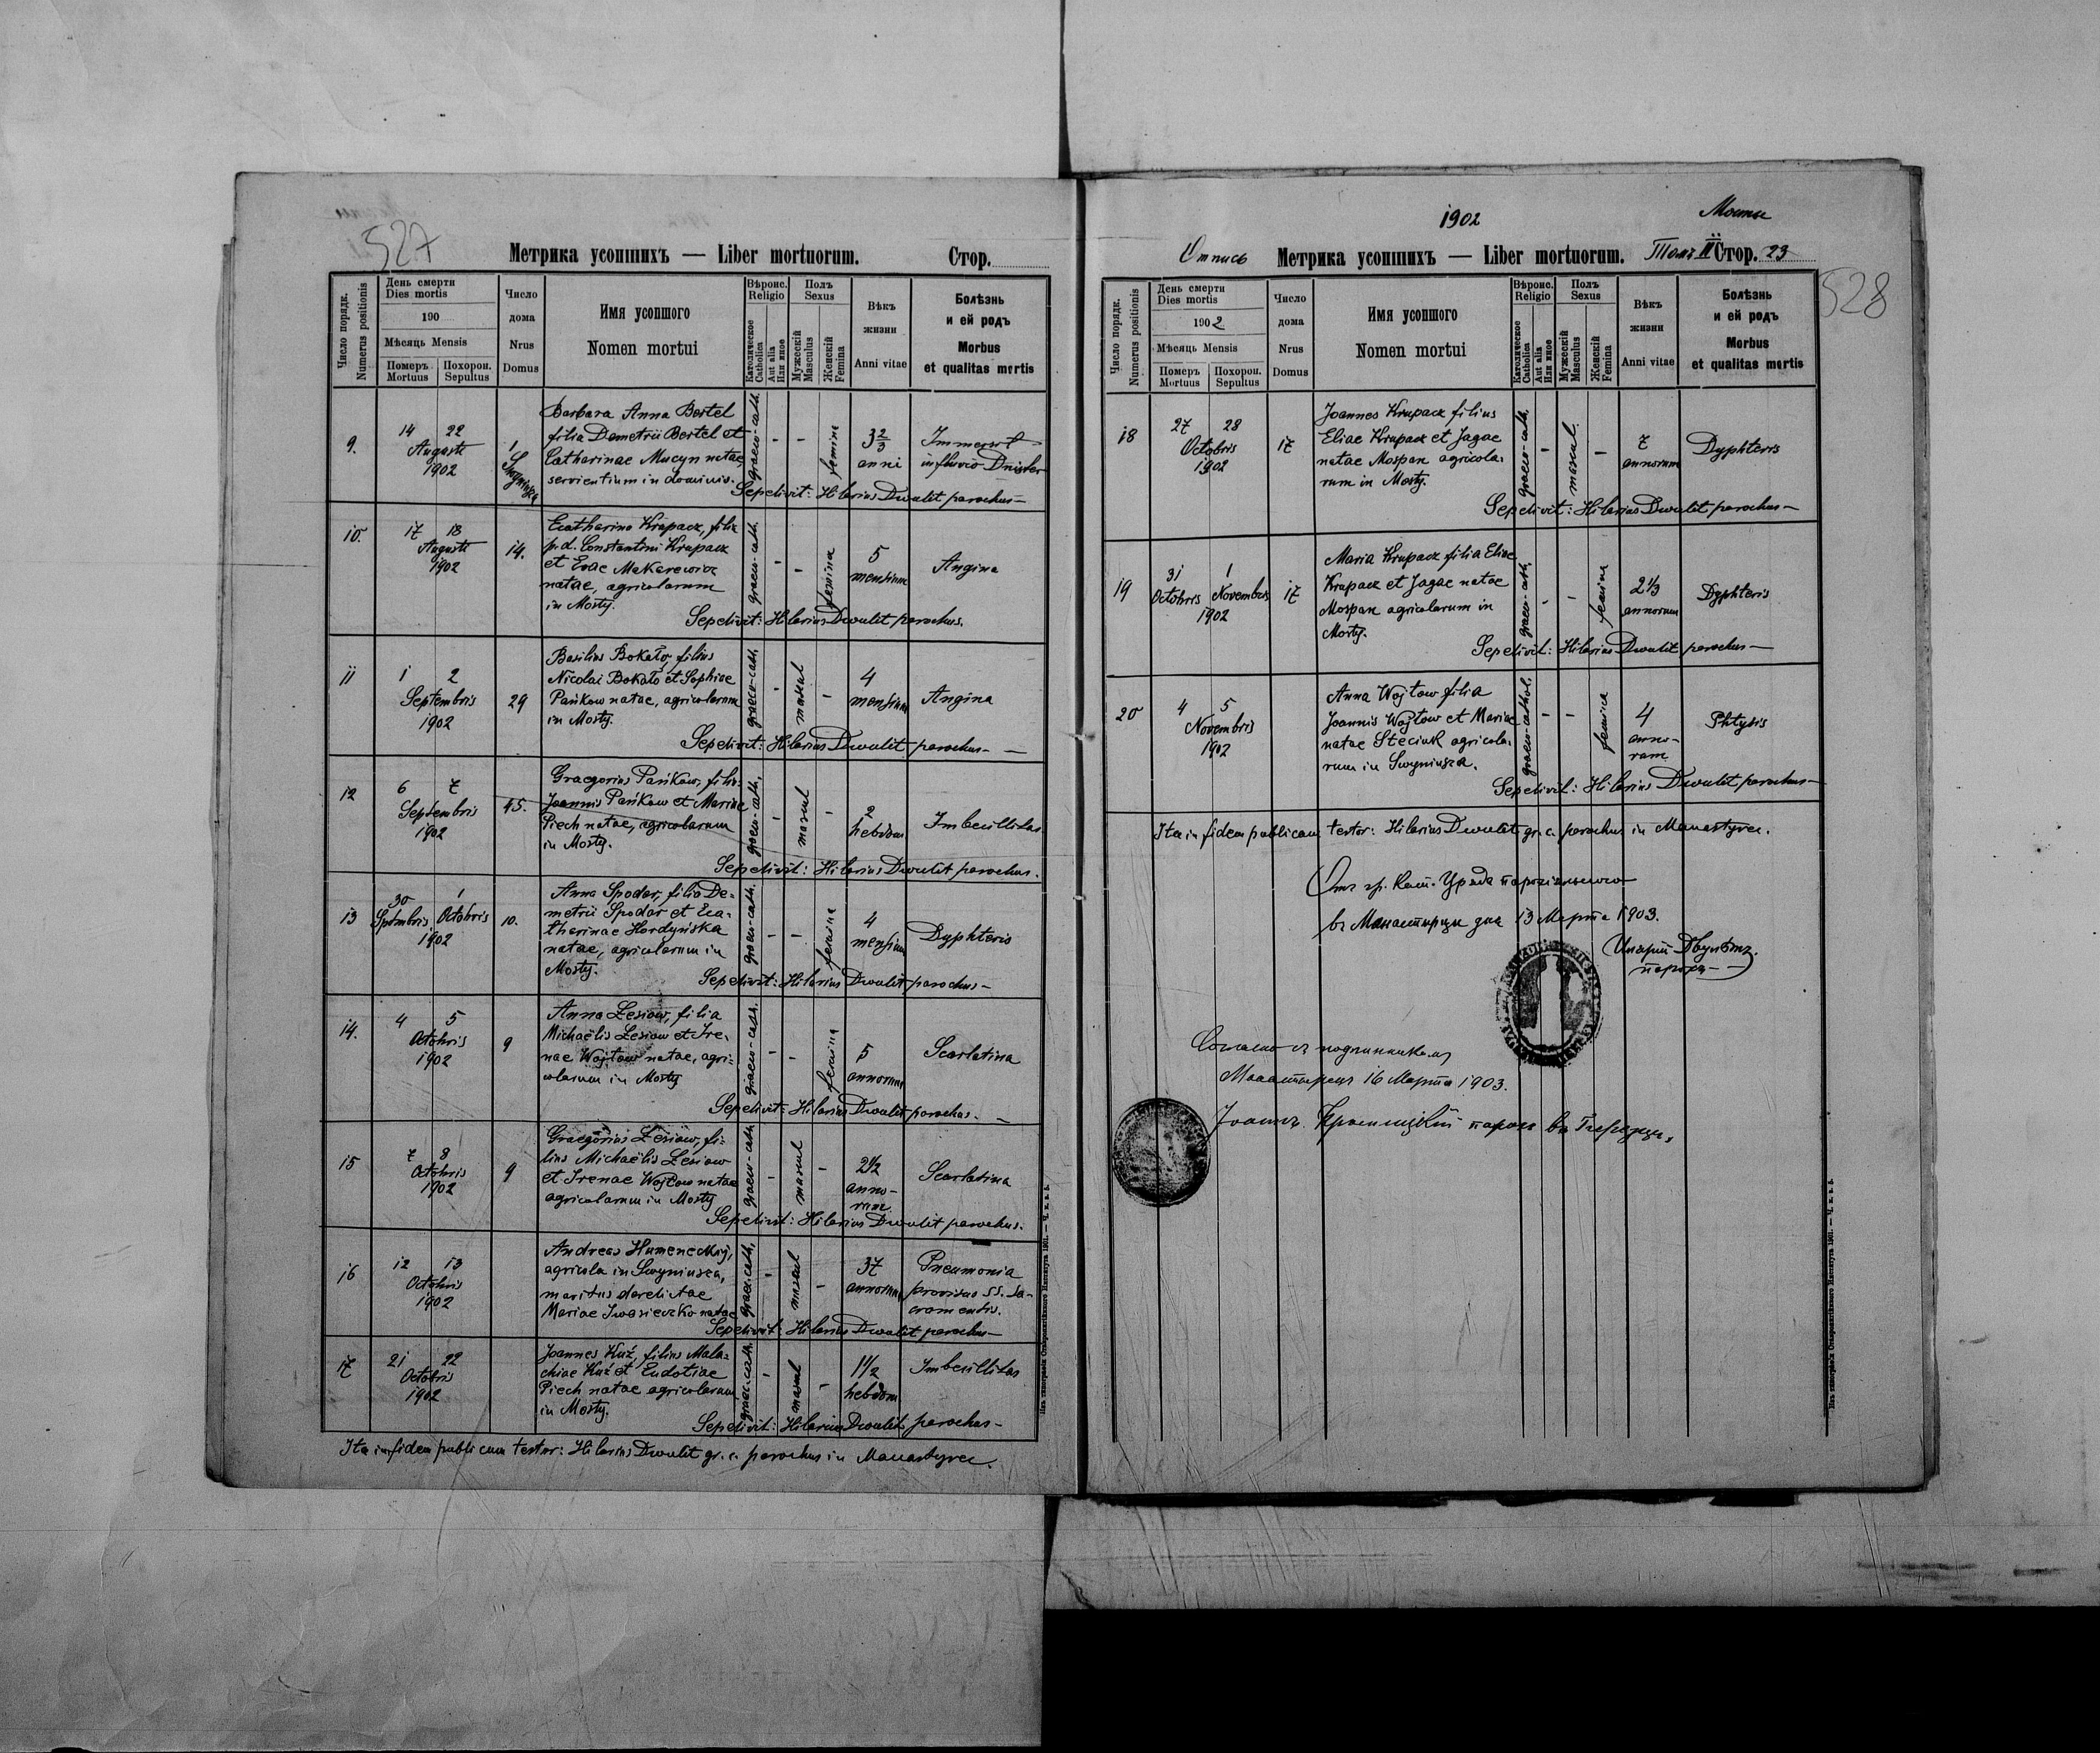 527
Метрика усопшихъ — Liber mortuorum.
Стор.
Число порядк.
Numerus positionis
День смерти
Dies mortis
190
Мѣсяць Mensis
Померъ
Mortuus
Похорон.
Sepultus
Число
дома
Nrus
Domus
Имя усопшого
Nomen mortui
Вѣроис.
Religio
Католическое
Catholica
Aut alia
Или иное
Полъ
Sexus
Мужескій
Masculus
Женскій
Femina
Вѣкъ
жизни
Anni vitae
Болѣзнь
и ей родъ
Morbus
et qualitas mortis
9.
14 22
Augusti
1902
1
Barbara Anna Bertel
filia Demetrii Bertel et
Catharinae Mucyn natae,
servientium in dominio.
graeco-cath.
- -
femina
3 2/3
anni
Immersit
in fluvio Dniester
Sepelivit: Hilarius Dwulit parochus —
10.
17 18
Augusti
1902
14.
Ecatharina Krupacz, filia
p. d. Constantini Krupacz
et Evae Makarewicz
natae, agricolarum
in Mosty.
graeco-cath.
- -
femina
5
mensium
Angina
Sepelivit: Hilarius Dwulit parochus.
11
1 2
Septembris
1902
29
Basilius Bokało, filius
Nicolai Bokało et Sophiae
Pańkow natae, agricolarum
in Mosty.
graeco-cath.
-
mascul
-
4
mensium
Angina
Sepelivit: Hilarius Dwulit parochus —
12
6 7
Septembris
1902
45.
Graegorius Pańkow, filius
Joannis Pańkow et Mariae
Piech natae, agricolarum
in Mosty.
graeco-cath.
-
mascul
-
2
hebdom
Imbecillitas
Sepelivit: Hilarius Dwulit parochus.
13
30 1
Septmbris. Octobris
1902
10.
Anna Spodar, filia De-
metrii Spodar et Eca-
tharinae Hordyńska
natae, agricolarum in
Mosty.
graeco-cath.
- -
femina
4
mensium
Dyphteris
Sepelivit: Hilarius Dwulit parochus —
14.
4 5
Octobris
1902
9
Anna Lesiow, filia
Michaëlis Lesiow et Ire-
nae Wojtow natae, agri-
colarum in Mosty
graeco-cath.
- -
femina
5
annorum
Scarlatina
Sepelivit: Hilarius Dwulit parochus. —
15
7 8
Octobris
1902
9
Graegorius Lesiow, fi-
lius Michaëlis Lesiow
et Irenae Wojtow natae
agricolarum in Mosty
graeco-cath.
-
mascul
-
2 1/2
anno-
rum
Scarlatina
Sepelivit: Hilarius Dwulit parochus.
16
12 13
Octobris
1902
Andreas Humeneckyj,
agricola in Swyniusza,
maritus derelictae
Mariae Iwasieczko natae
graec. cath.
-
mascul
-
37
annorum
Pneumonia
provisus SS. Sa-
cramentis.
Sepelivit: Hilarius Dwulit parochus —
17
21 22
Octobris
1902
Joannes Kuź, filius Mala-
chiae Kuź et Eudotiae
Piech natae agricolarum
in Mosty.
graec. cath.
-
mascul
-
1 1/2
hebdom
Imbecillitas
Sepelivit: Hilarius Dwulit parochus —
Ita in fidem publicam testor: Hilarius Dwulit gr. c. parochus in Manastyrec.
1902
Мосты
Отпись
Метрика усопшихъ — Liber mortuorum.
Томъ II Стор. 23
528
Число порядк.
Numerus positionis
День смерти
Dies mortis
1902
Мѣсяць Mensis
Померъ
Mortuus
Похорон.
Sepultus
Число
дома
Nrus
Domus
Имя усопшого
Nomen mortui
Вѣроис.
Religio
Католическое
Catholica
Aut alia
Или иное
Полъ
Sexus
Мужескій
Masculus
Женскій
Femina
Вѣкъ
жизни
Anni vitae
Болѣзнь
и ей родъ
Morbus
et qualitas mortis
18
27 28
Octobris
1902
17
Joannes Krupacz filius
Eliae Krupacz et Jagae
natae Mospan agricola-
rum in Mosty.
graeco-cath.
-
mascul.
-
7
annorum
Dyphteris
Sepelivit: Hilarius Dwulit parochus —
19
31 1
Octobris Novembris
1902
17
Maria Krupacz filia Eliae
Krupacz et Jagae natae
Mospan agricolarum in
Mosty.
graeco-cath.
- -
femina
2 1/3
annorum
Dyphteris
Sepelivit: Hilarius Dwulit parochus —
20
4 5
Novembris
1902
Anna Wojtow filia
Joannis Wojtow et Mariae
natae Steciuk agricola-
rum in Swyniusza.
graeco-cathol.
- -
femina
4
anno-
rum
Phtysis
Sepelivit: Hilarius Dwulit parochus —
Ita in fidem publicam testor: Hilarius Dwulit gr. c. parochus in Manastyrec.
Отъ гр. кат. Уряда парохіяльного
въ Манастырци дня 13 Марта 1903.
Иларій Двулѣтъ.
парохъ
Согласно съ подлинникомъ
Манастырецъ 16 Марта 1903.
парохъ въ
Изъ типографіи Ставропигійского Института 1901. — Ч. к. в. 5.
Изъ типографіи Ставропигійского Института 1901. — Ч. к. в. 5.